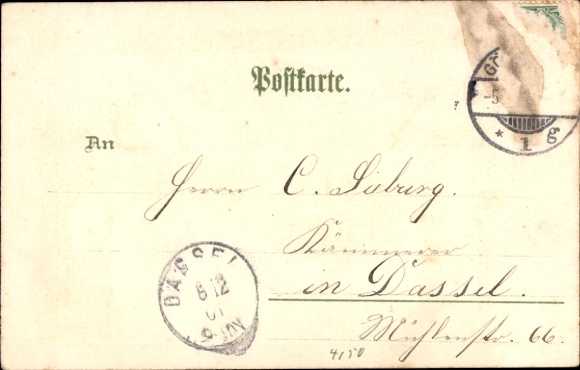 Postkarte.
An
Herrn C. Sieburg.
Kämmerer
in Dassel.
Mühlenstr. 66.
DASSEL
8 12
01
4150
-5
* 1 g